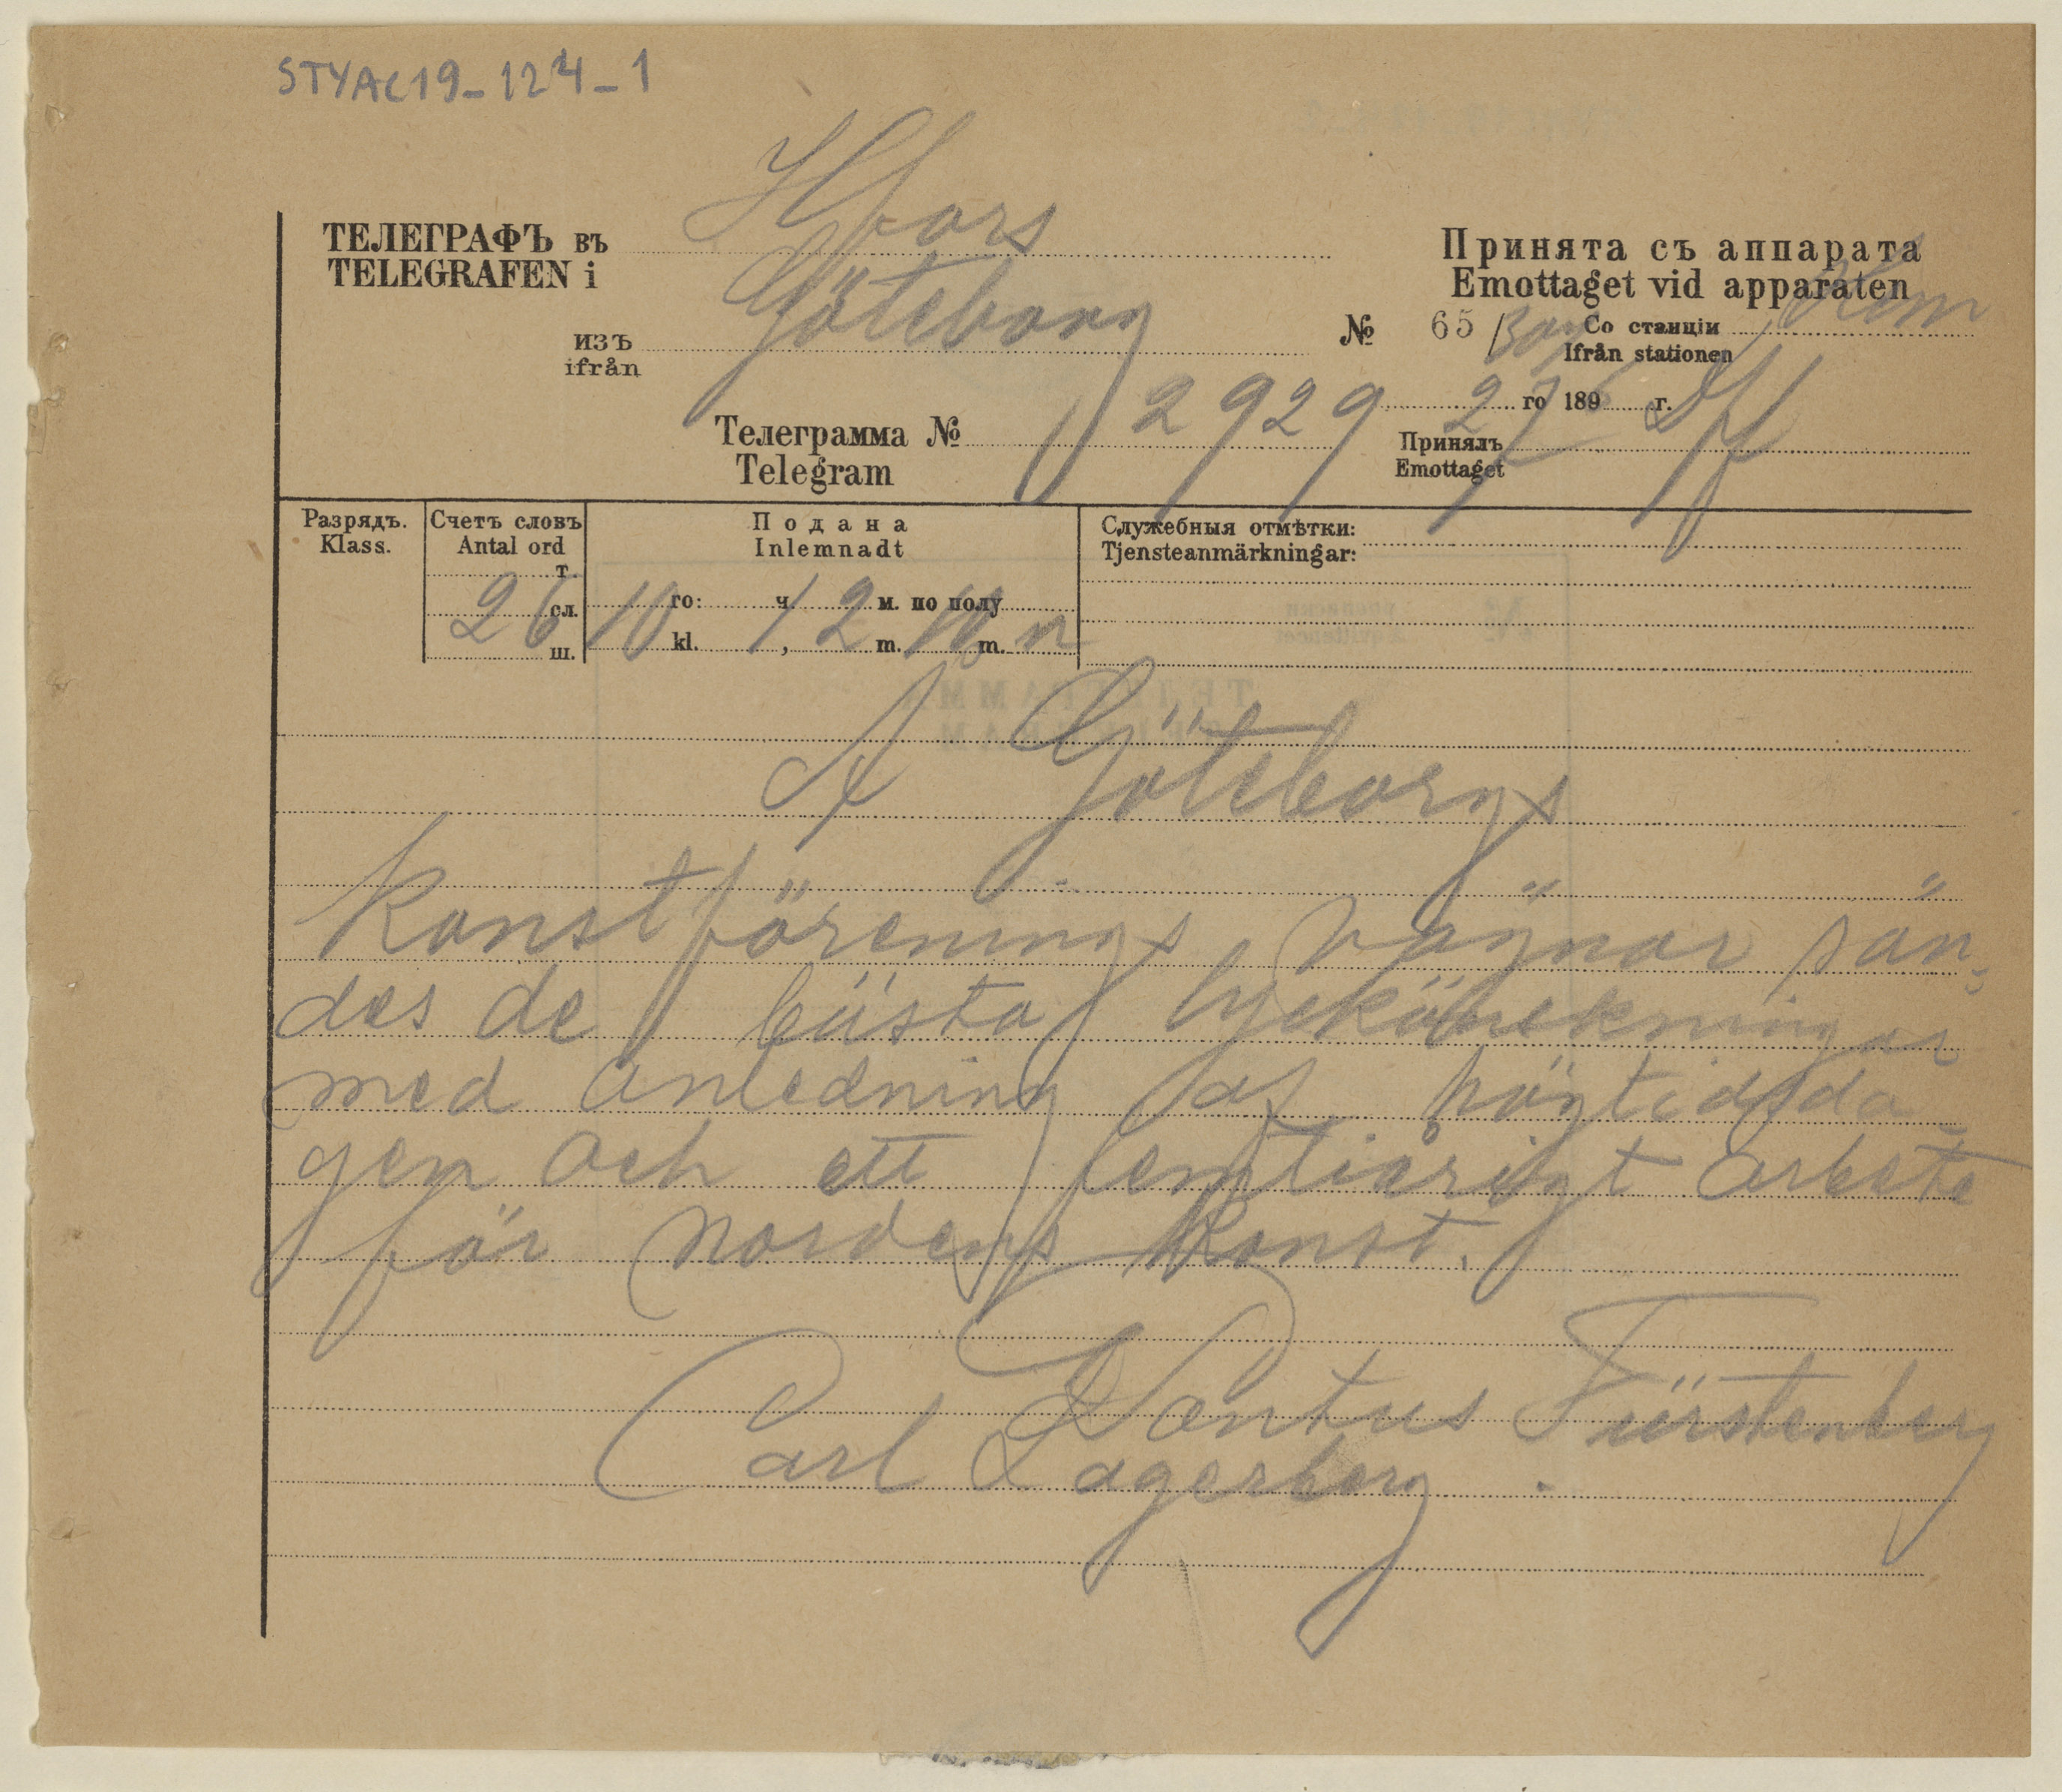 STYAC19_124_1
Hfors
ТЕЛЕГРАФЪ въ
TELEGRAFEN i
Принята съ аппарата
Emottaget vid apparaten
Göteborg
изъ
ifrån
№ 65
Со станціи
Ifrån stationen
го 189 г.
Телеграмма № 2929
Telegram
Принялъ
Emottaget
27
Разрядъ.
Klass.
Счетъ словъ
Antal ord
Подана
Inlemnadt
Служебныя отмѣтки:
Tjensteanmärkningar:
т.
26 сл.
ш.
10 го: ч. 12 м. по полу
kl. , m. m.
A Göteborgs
Konstförenings vägnar sän-
des de bästa lyckönskningar
med anledning af högtidsda
gen och ett femtiårigt arbete
för Nordens Konst.
Pontus Fürstenberg
Carl Lagerberg.